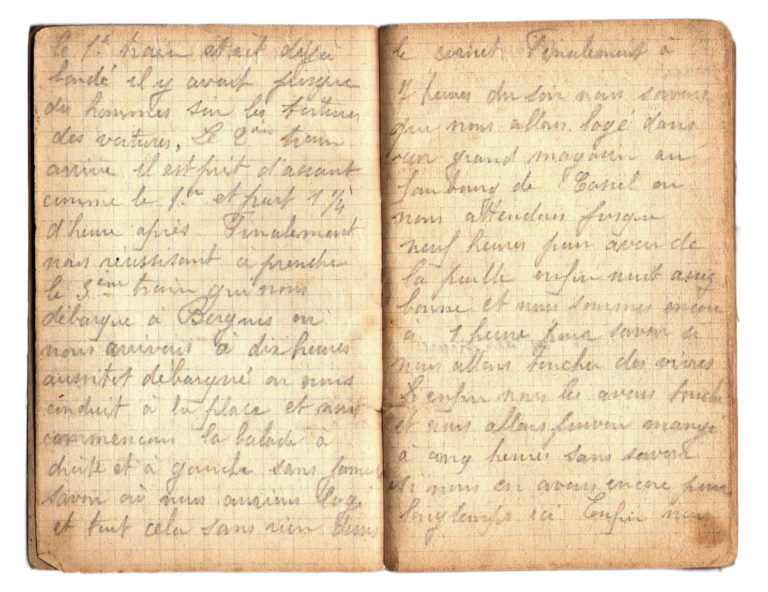 le 1er train était déjà
bondé il y avait jusque
des hommes sur les toitures
des voitures, Le 2ème train
arrive il est prit d'assaut
comme le 1er et part 1 ¼
d'heure après. Finalement
nous réussisont à prendre
le 3ème train qui nous
débarque à Bergues ou
nous arrivons à dix heures
aussitot débarqué on nous
conduit à la place et nous
commencons la balade à
droite et à gauche sans jamais
savoir où nous aurions logé
et tout cela sans rien dans
le cornet. Finalement à
7 heures du soir nous savons
que nous allons logé dans
un grand magasin au
faubourg de Cassel ou
nous attendons jusque
neuf heures pour avoir de
la paille enfin nuit assez
bonne et nous sommes encore
à 1 heure pour savoir si
nous allons toucher des vivres
Enfin nous les avons touché
et nous allons pouvoir mangé
à cinq heures sans savoir
si nous en avons encore pour
longtemps ici. Enfin nous